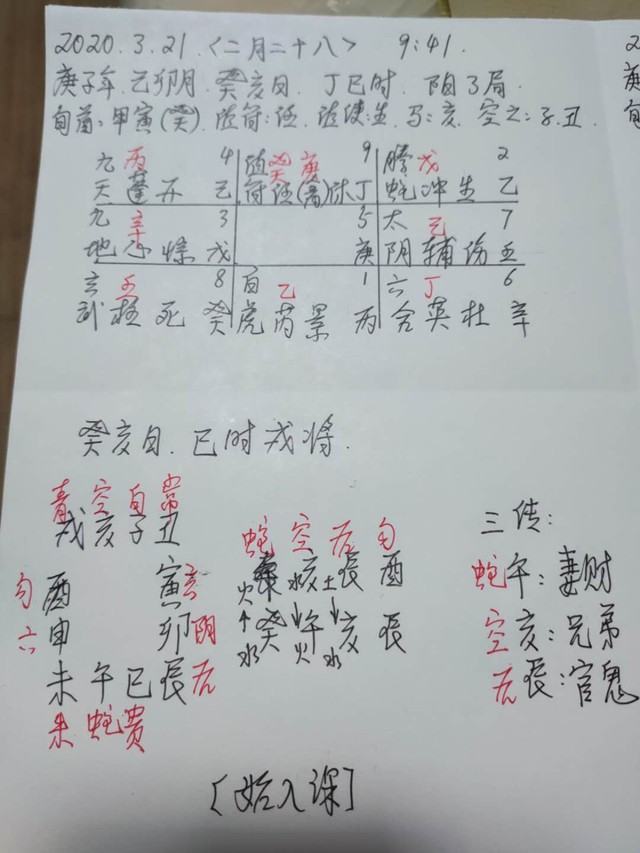 2020.3.21.<二月二十八> 9:41.
庚子年.乙卯月.癸亥日.丁巳时.阳3局
旬首:甲寅(癸).值符:任.值使:生.马:亥.空亡:子.丑.
九 丙 4 值 癸 庚 9 螣 戊 2
天 蓬 开 己 符 任(禽)休 丁 蛇 冲 生 乙
九 辛 3 5 太 己 7
地 心 惊 戊 庚 阴 辅 伤 壬
玄 壬 8 白 乙 1 六 丁 6
武 柱 死 癸 虎 芮 景 丙 合 英 杜 辛
癸亥日.巳时戌将.
青空白常
戌亥子丑
勾 酉 寅 玄
六 申 卯 阴
未午巳辰 后
朱蛇贵
蛇 空 后 勾
火 水 亥 土 辰 酉
↑ 癸 ↓ 午 ↓ 亥 辰
水 火 水
三传:
蛇 午:妻财
空 亥:兄弟
后 辰:官鬼
[始入课]